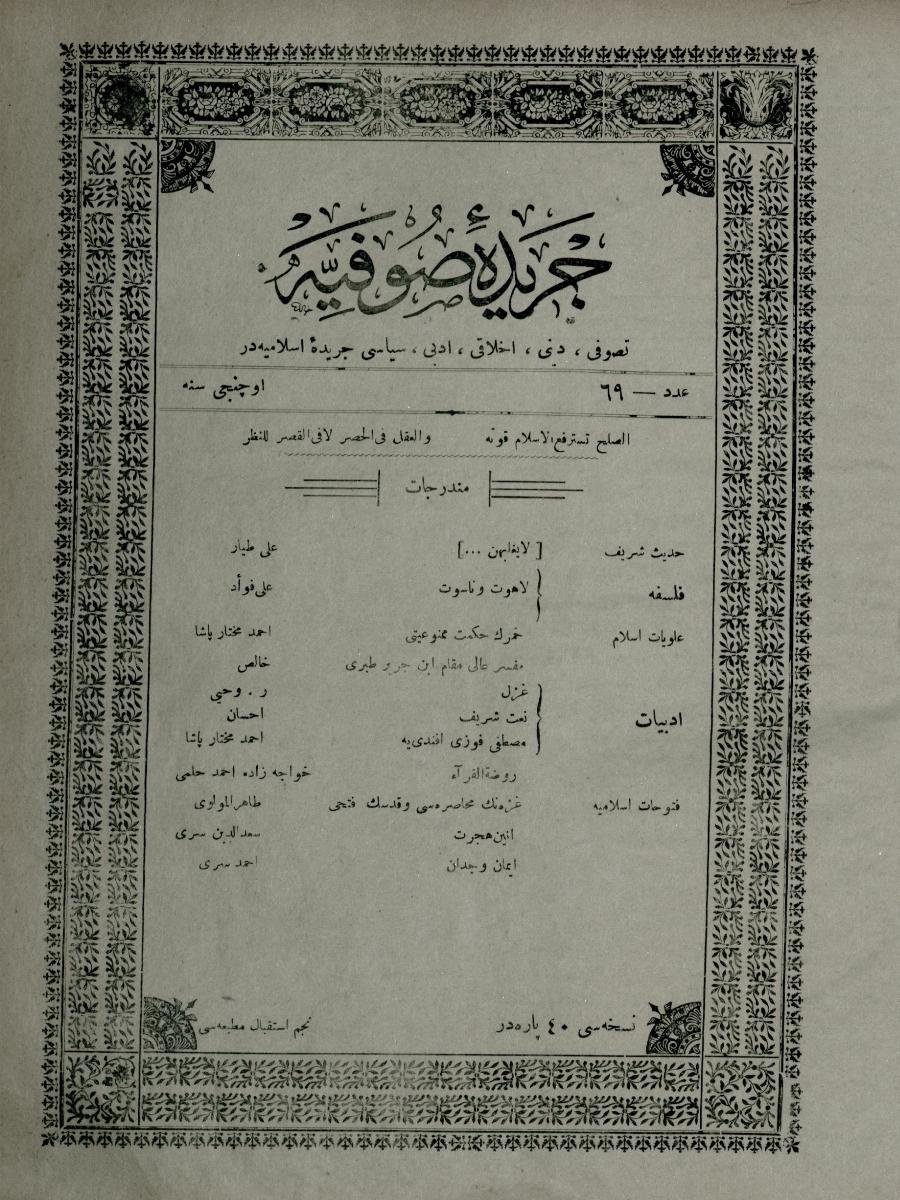 جريدۀ صوفيه
تصوفى ، دينى ، اخلاقى ، ادبى ، سياسى جريدۀ اسلاميه‌در
عدد — ٦٩ اوچنجى سنه
الصلح تسترفع الاسلام قوته والعقل فى الحصر لا فى القصر للنظر
مندرجات
حديث شريف [ لايغلبهن ...] على طيار
فلسفه لاهوت وناسوت على فوأد
علويات اسلام خمرك حكمت ممنوعيتى احمد مختار پاشا
مفسر عالى مقام ابن جرير طبرى خالص
ادبيات
غزل ر . وحيى
نعت شريف احسان
مصطفى فوزى افندى‌يه احمد مختار پاشا
روضة القرآء خواجه زاده احمد حلمى
فتوحات اسلاميه غزه‌نك محاصره‌سى وقدسك فتحى طاهر المولوى
انين هجرت سعدالدين سرى
ايمان وجدان احمد سرى
نسخه‌سى ٤٠ پاره‌در
نجم استقبال مطبعه‌سى